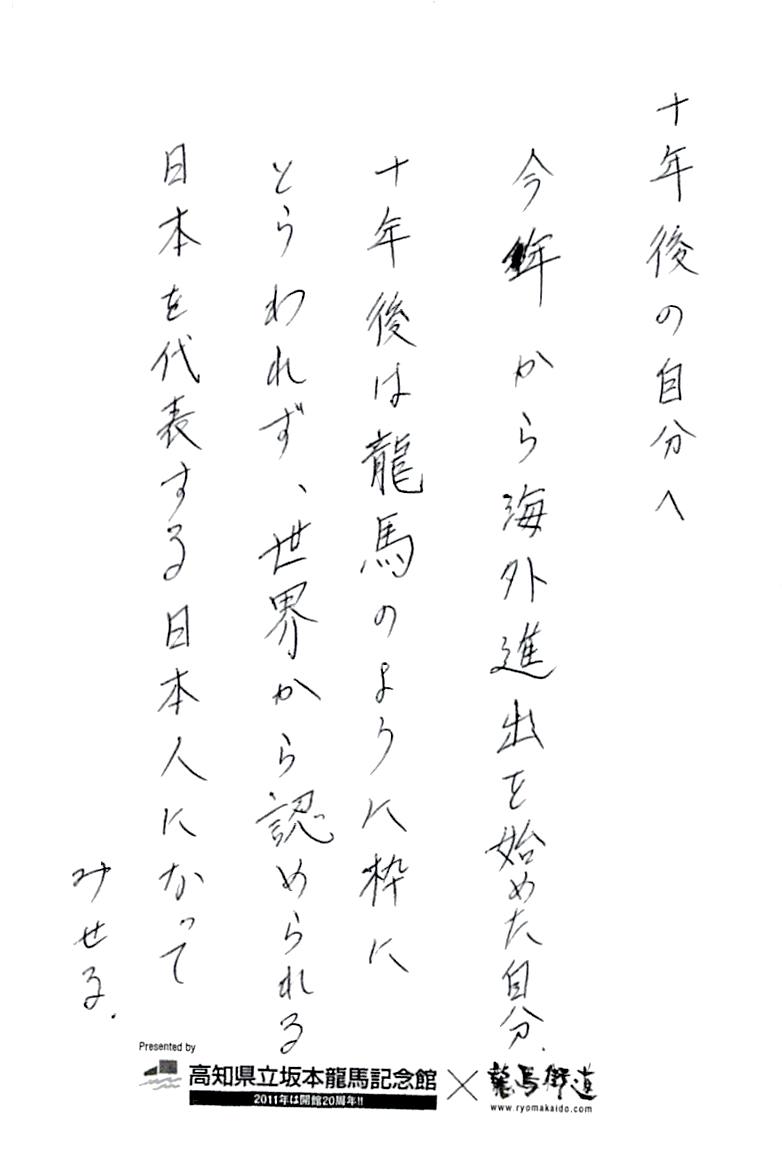 十年後の自分へ
今年から海外進出を始めた自分.
十年後は龍馬のように枠に
とらわれず、世界から認められる
日本を代表する日本人になって
みせる.
Presented by
高知県立坂本龍馬記念館×龍馬街道
2011年は開館20周年!!
www.ryomakaido.com